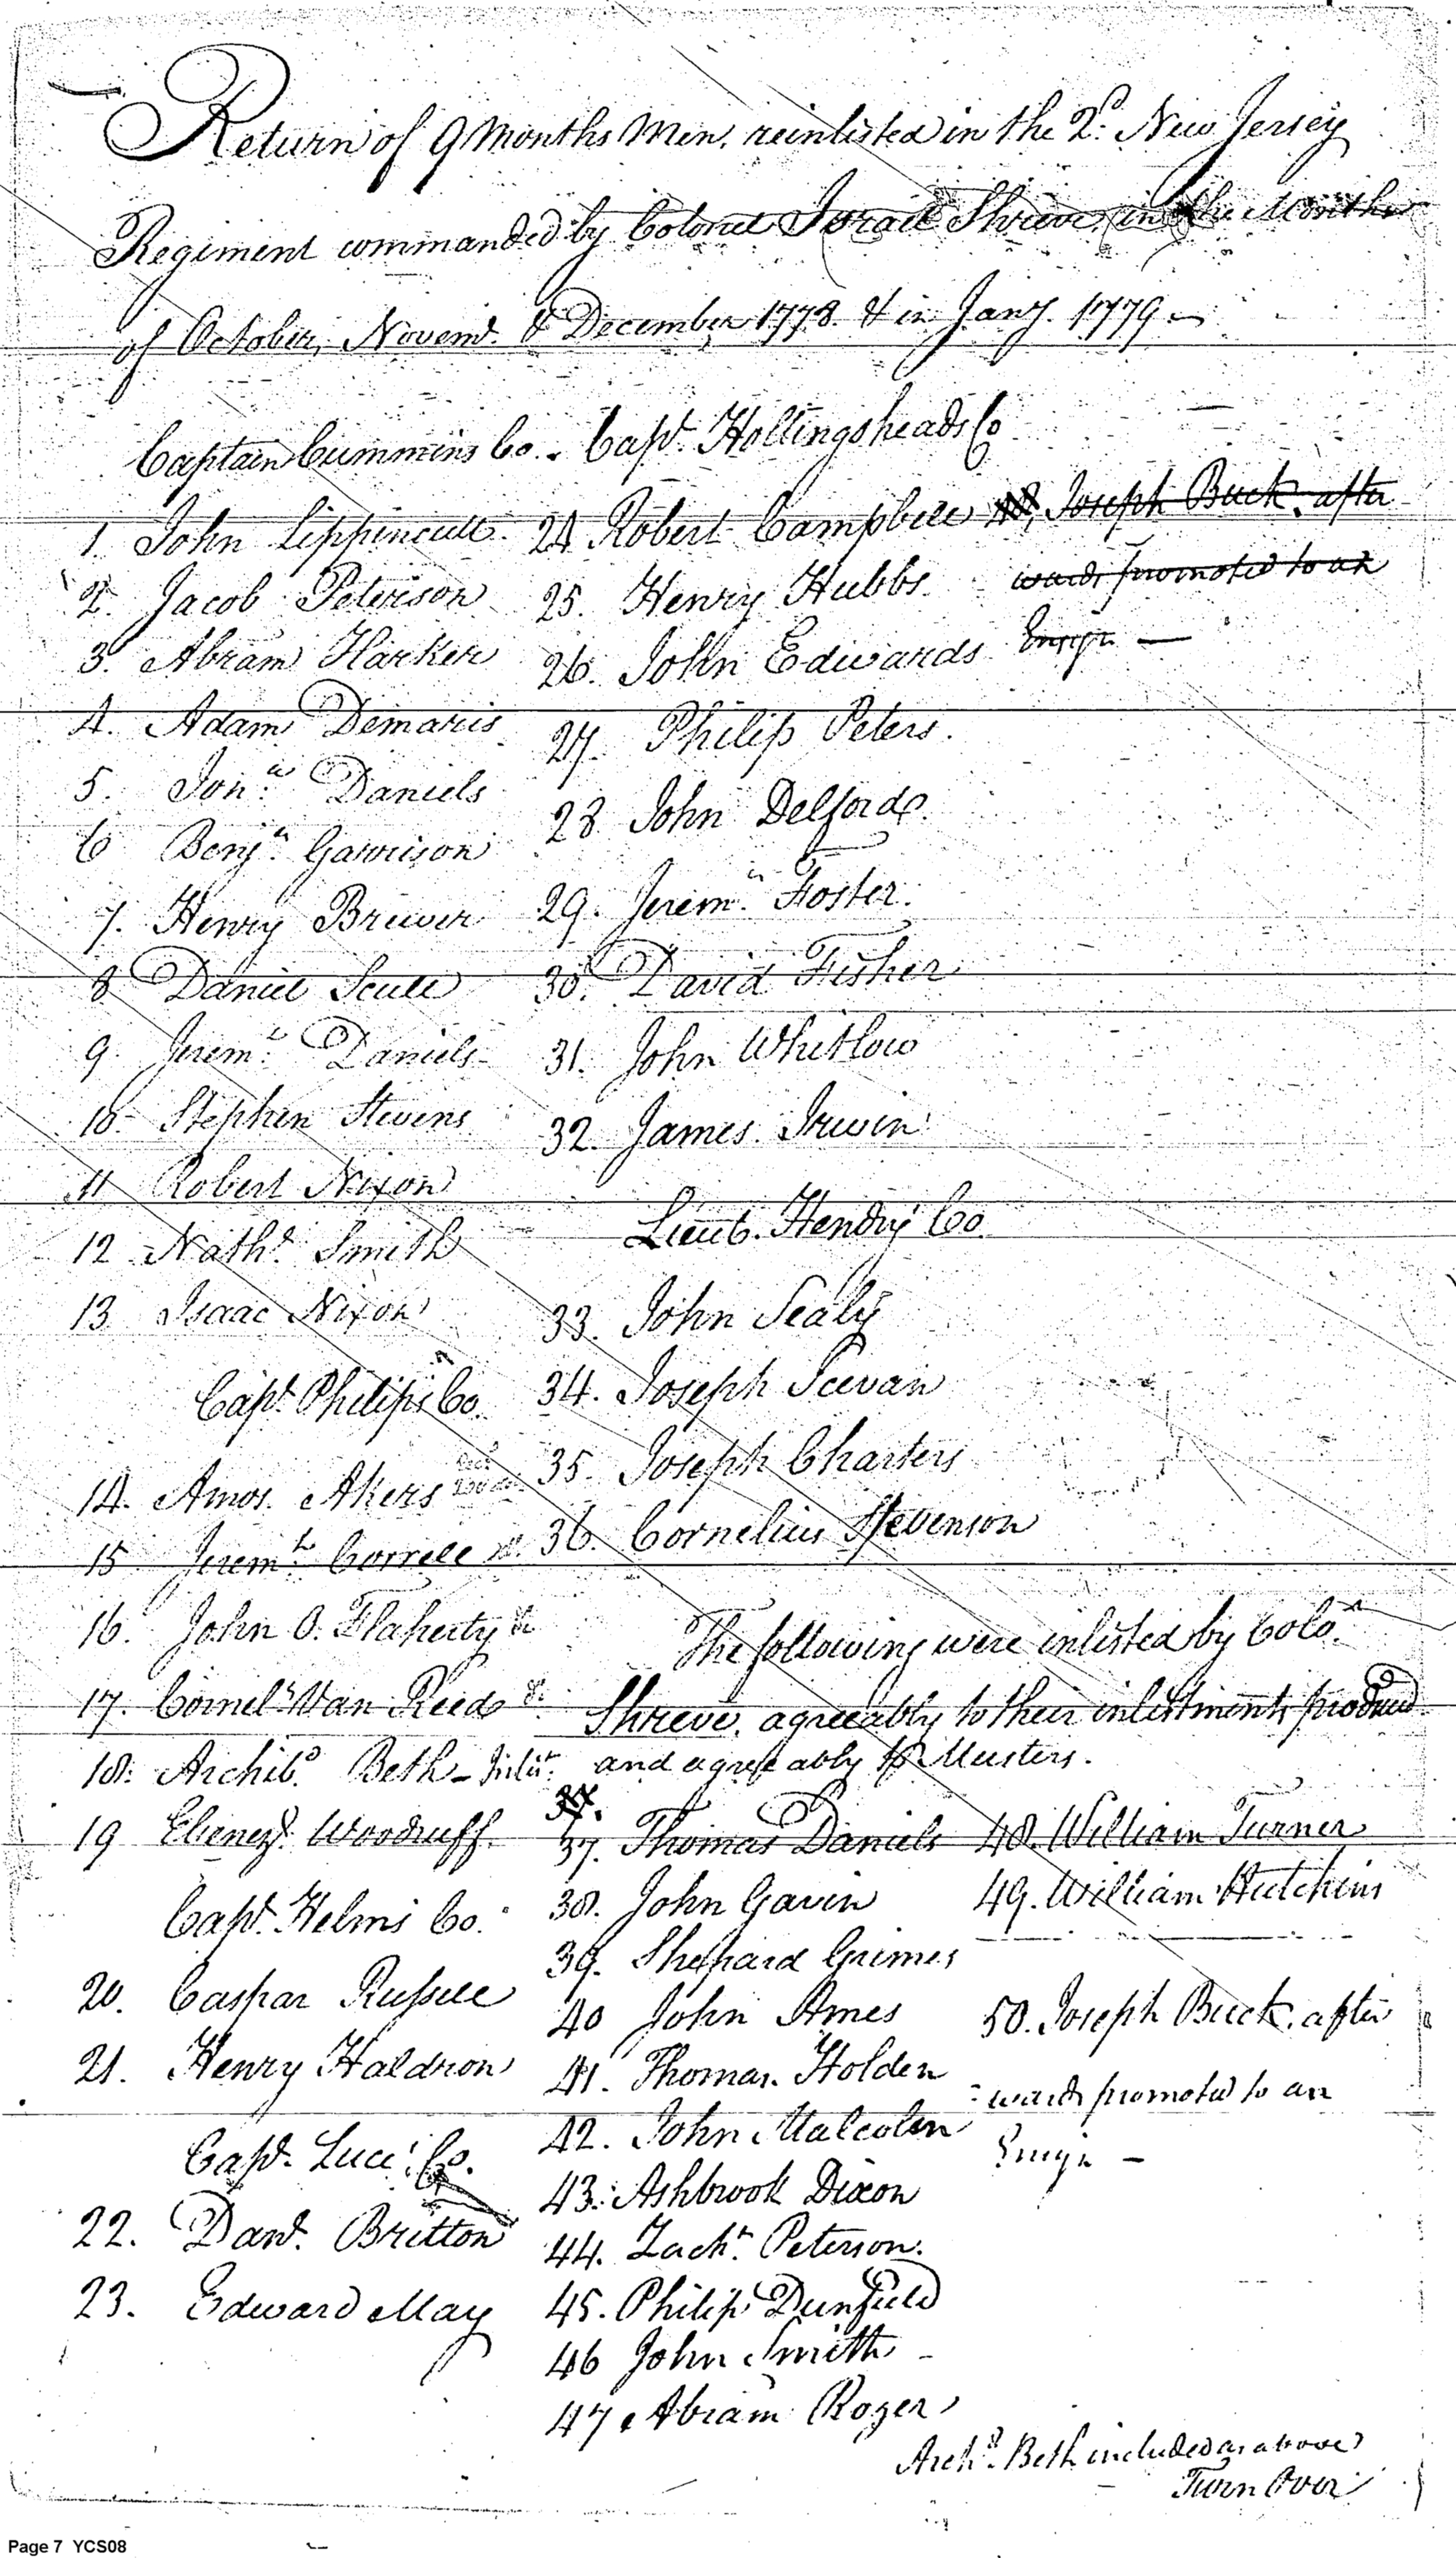 Return of 9 Months Men, reinlisted in the 2d. New Jersey
Regiment commanded by Colonel Israel Shreve, in the Months
of October, Novemr. & December 1778. & in Jany. 1779.
Captain Cummins Co.
1. John Lippincutt
2. Jacob Peterson
3. Abram Harker
4. Adam Demaris
5. Jona. Daniels
6 Benja. Garrison
7. Henry Brewer
8 Daniel Scull
9. Jeremh. Daniels
10. Stephen Stevens
11 Robert Nixon
12 Nathl. Smith
13 Isaac Nixon
Capt. Philips Co.
14. Amos Akers
15 Jeremh. Correll
16. John O. Flaherty
17. Cornels. Van Reed
18. Archibd. Beth
19 Ebenezr. Woodruff
Capt. Helms Co.
20. Caspar Russell
21. Henry Haldron
Capt. Luce's Co.
22. Danl. Britton
23. Edward May
Capt. Hollingsheads Co
24 Robert Campbell
25. Henry Hubbs.
26. John Edwards
27. Philip Peters.
28 John Delford
29. Jeremh. Foster.
30. David Fisher
31. John Whitlow
32. James Irwin
Lieut. Hendry Co.
33. John Sealy
34. Joseph Scevan
35. Joseph Charters
36. Cornelius Stevenson
The following were inlisted by Colo.
Shreve, agreeably to their inlistments produced
and agreeably to Musters.
37.
37. Thomas Daniels
38. John Gavin
39. Shepard Grimes
40 John Ames
41. Thomas Holden
42. John Malcolm
43. Ashbrook Dixon
44. Zachh. Peterson.
45. Philip Dunfield
46 John Smith
47 Abram Rozer
Joseph Buck after
wards promoted to an
Ensign —
48. William Turner
49. William Hutchins
50. Joseph Buck, after
wards promoted to an
Ensign —
Archd. Beth included as above
Turn Over
Page 7 YCS08